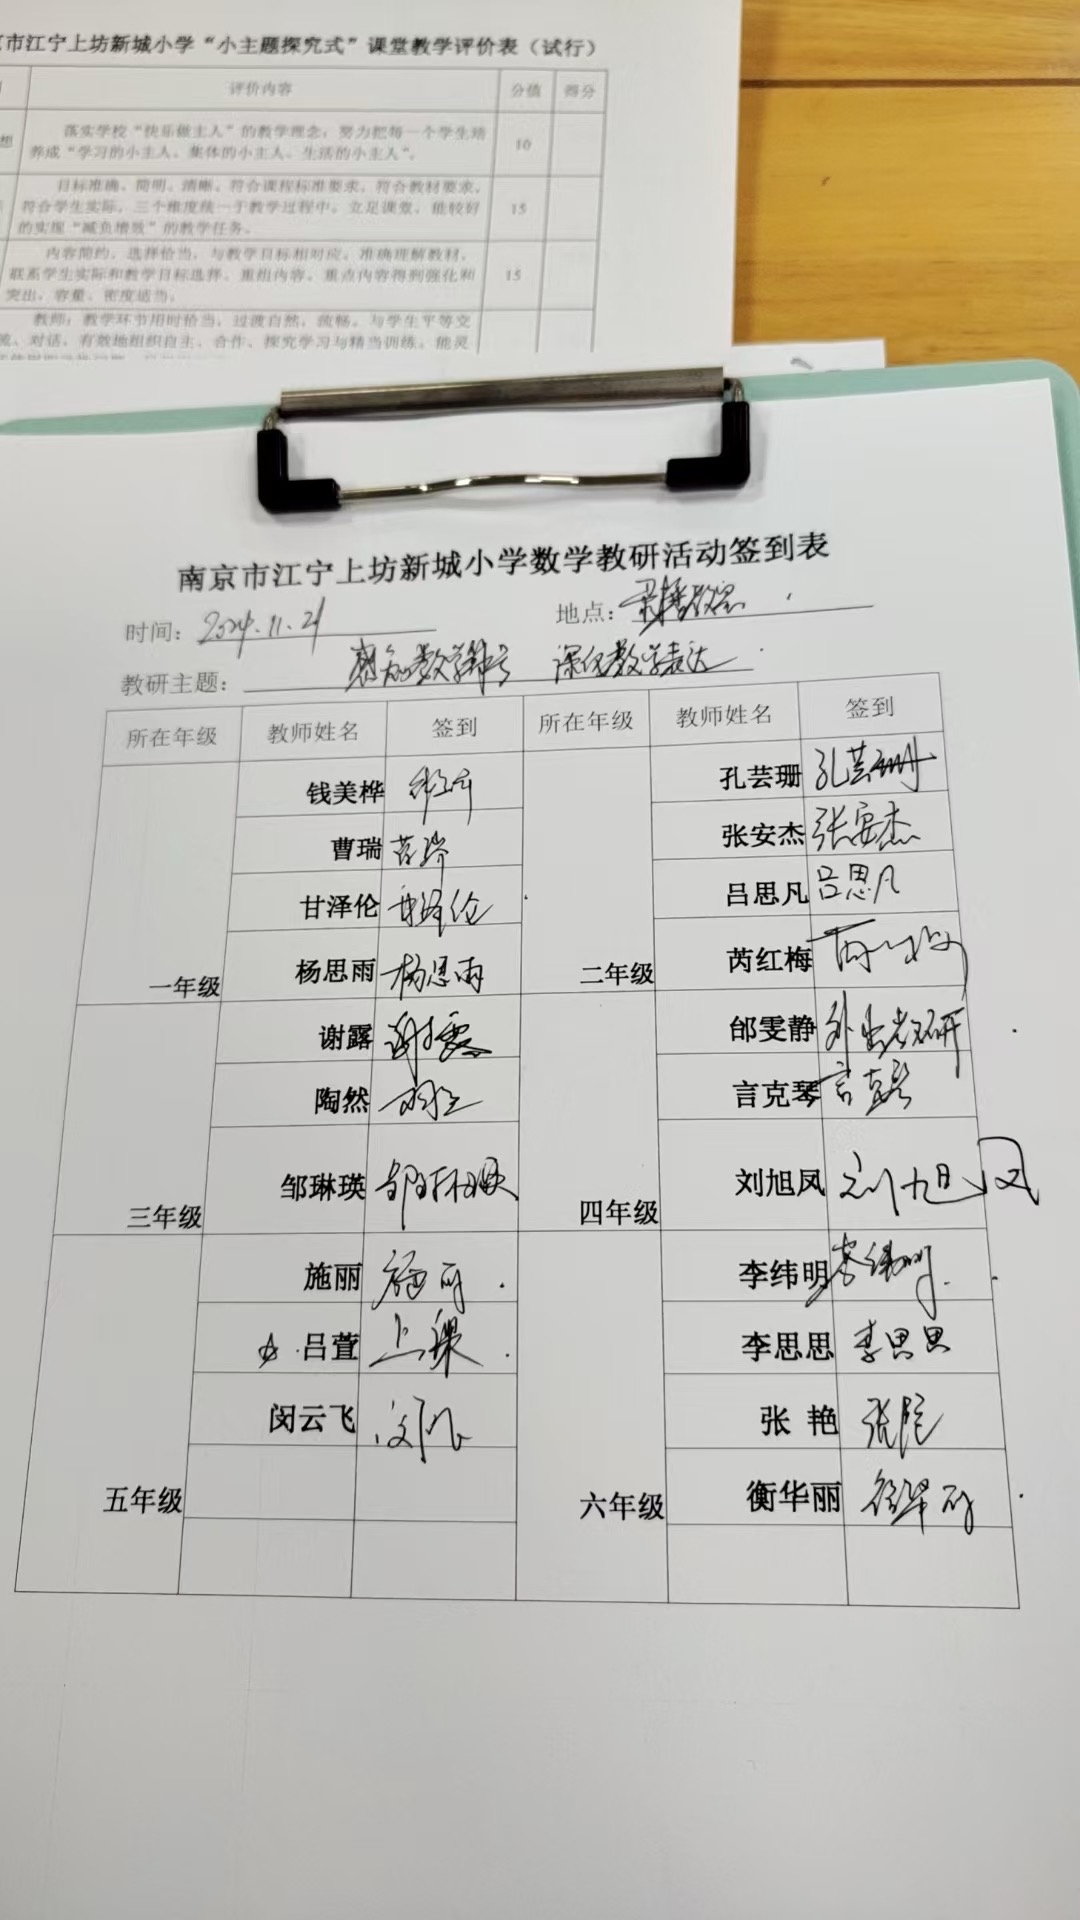 京市江宁上坊新城小学“小主题探究式”课堂教学评价表（试行）
评价内容 分值 得分
想 落实学校“快乐做主人”的教学理念，努力把每一个学生培
养成“学习的小主人、集体的小主人、生活的小主人”。 10
目标准确、简明、清晰，符合课程标准要求，符合教材要求，
符合学生实际，三个维度统一于教学过程中。立足课堂，能较好
的实现“减负增效”的教学任务。 15
内容简约，选择恰当，与教学目标相对应，准确理解教材，
联系学生实际和教学目标选择、重组内容。重点内容得到强化和
突出，容量、密度适当。 15
教师：教学环节用时恰当，过渡自然，流畅，与学生平等交
流、对话，有效地组织自主、合作、探究学习与精当训练。能灵
南京市江宁上坊新城小学数学教研活动签到表
时间：2024.11.21 地点：录播教室
教研主题：感知数学符号 深化数学表达
所在年级 教师姓名 签到 所在年级 教师姓名 签到
钱美桦 孔芸珊 孔芸珊
曹瑞 曹瑞 张安杰 张安杰
甘泽伦 甘泽伦 吕思凡 吕思凡
一年级 杨思雨 杨思雨 二年级 芮红梅 芮红梅
谢露 谢露 邰雯静 外出教研
陶然 陶然 言克琴 言克琴
三年级 邹琳瑛 邹琳瑛 四年级 刘旭凤 刘旭凤
施丽 施丽 李纬明 李纬明
☆ 吕萱 上课 李思思 李思思
闵云飞 闵云飞 张 艳 张艳
五年级 六年级 衡华丽 衡华丽